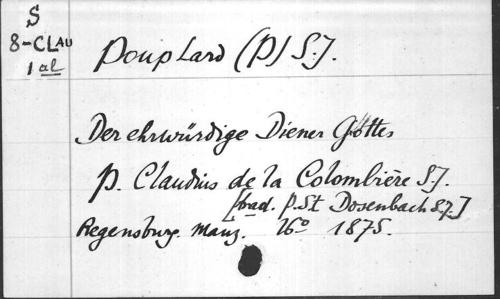 S
8-CLAU
1 al
Pouplard (P) S.J.
Der ehrwürdige Diener Gottes
P. Claudius de la Colombière S.J.
[trad. P. St Dosenbach S.J.]
Regensburg. Manz. 16° 1875.